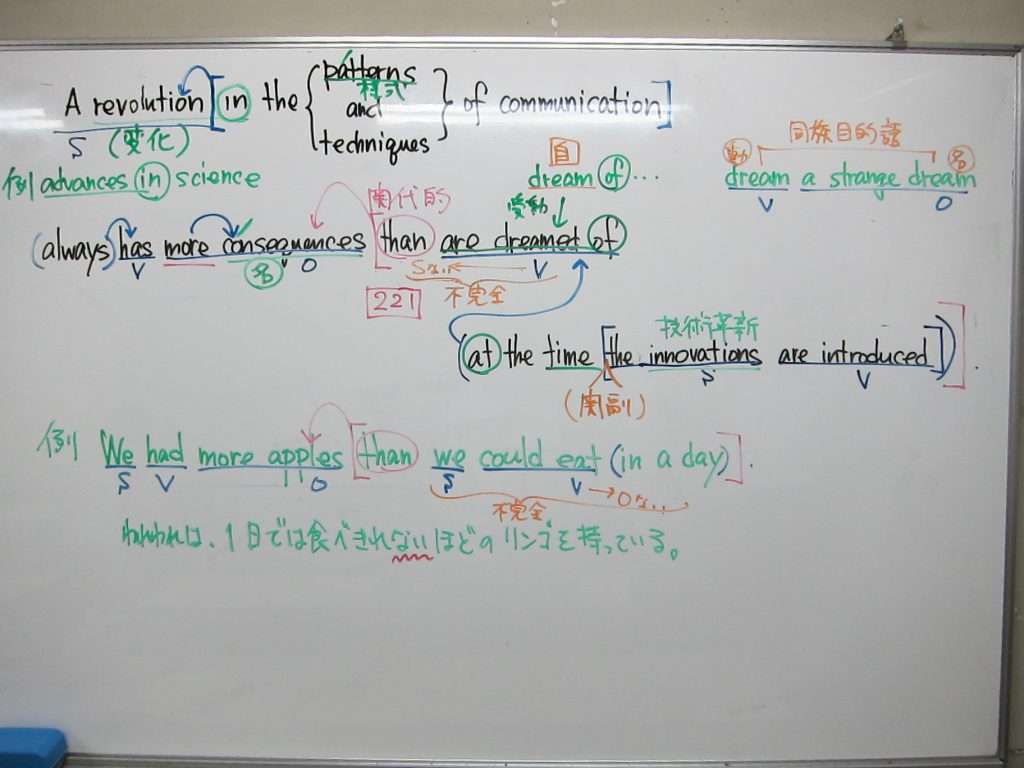 A revolution [in the { patterns and techniques } of communication]
S (変化) 様式
例) advances in science
自
dream of...
受動
同族目的語
動 名
dream a strange dream
V O
関代的
(always) has more consequences [than are dreamed of
V 名 O Sなし V
不完全
221
技術革新
(at the time [the innovations are introduced])].
S V
(関副)
例) We had more apples [than we could eat (in a day)].
S V O S V → Oなし
不完全
われわれは、1日では食べきれないほどのリンゴを持っている。